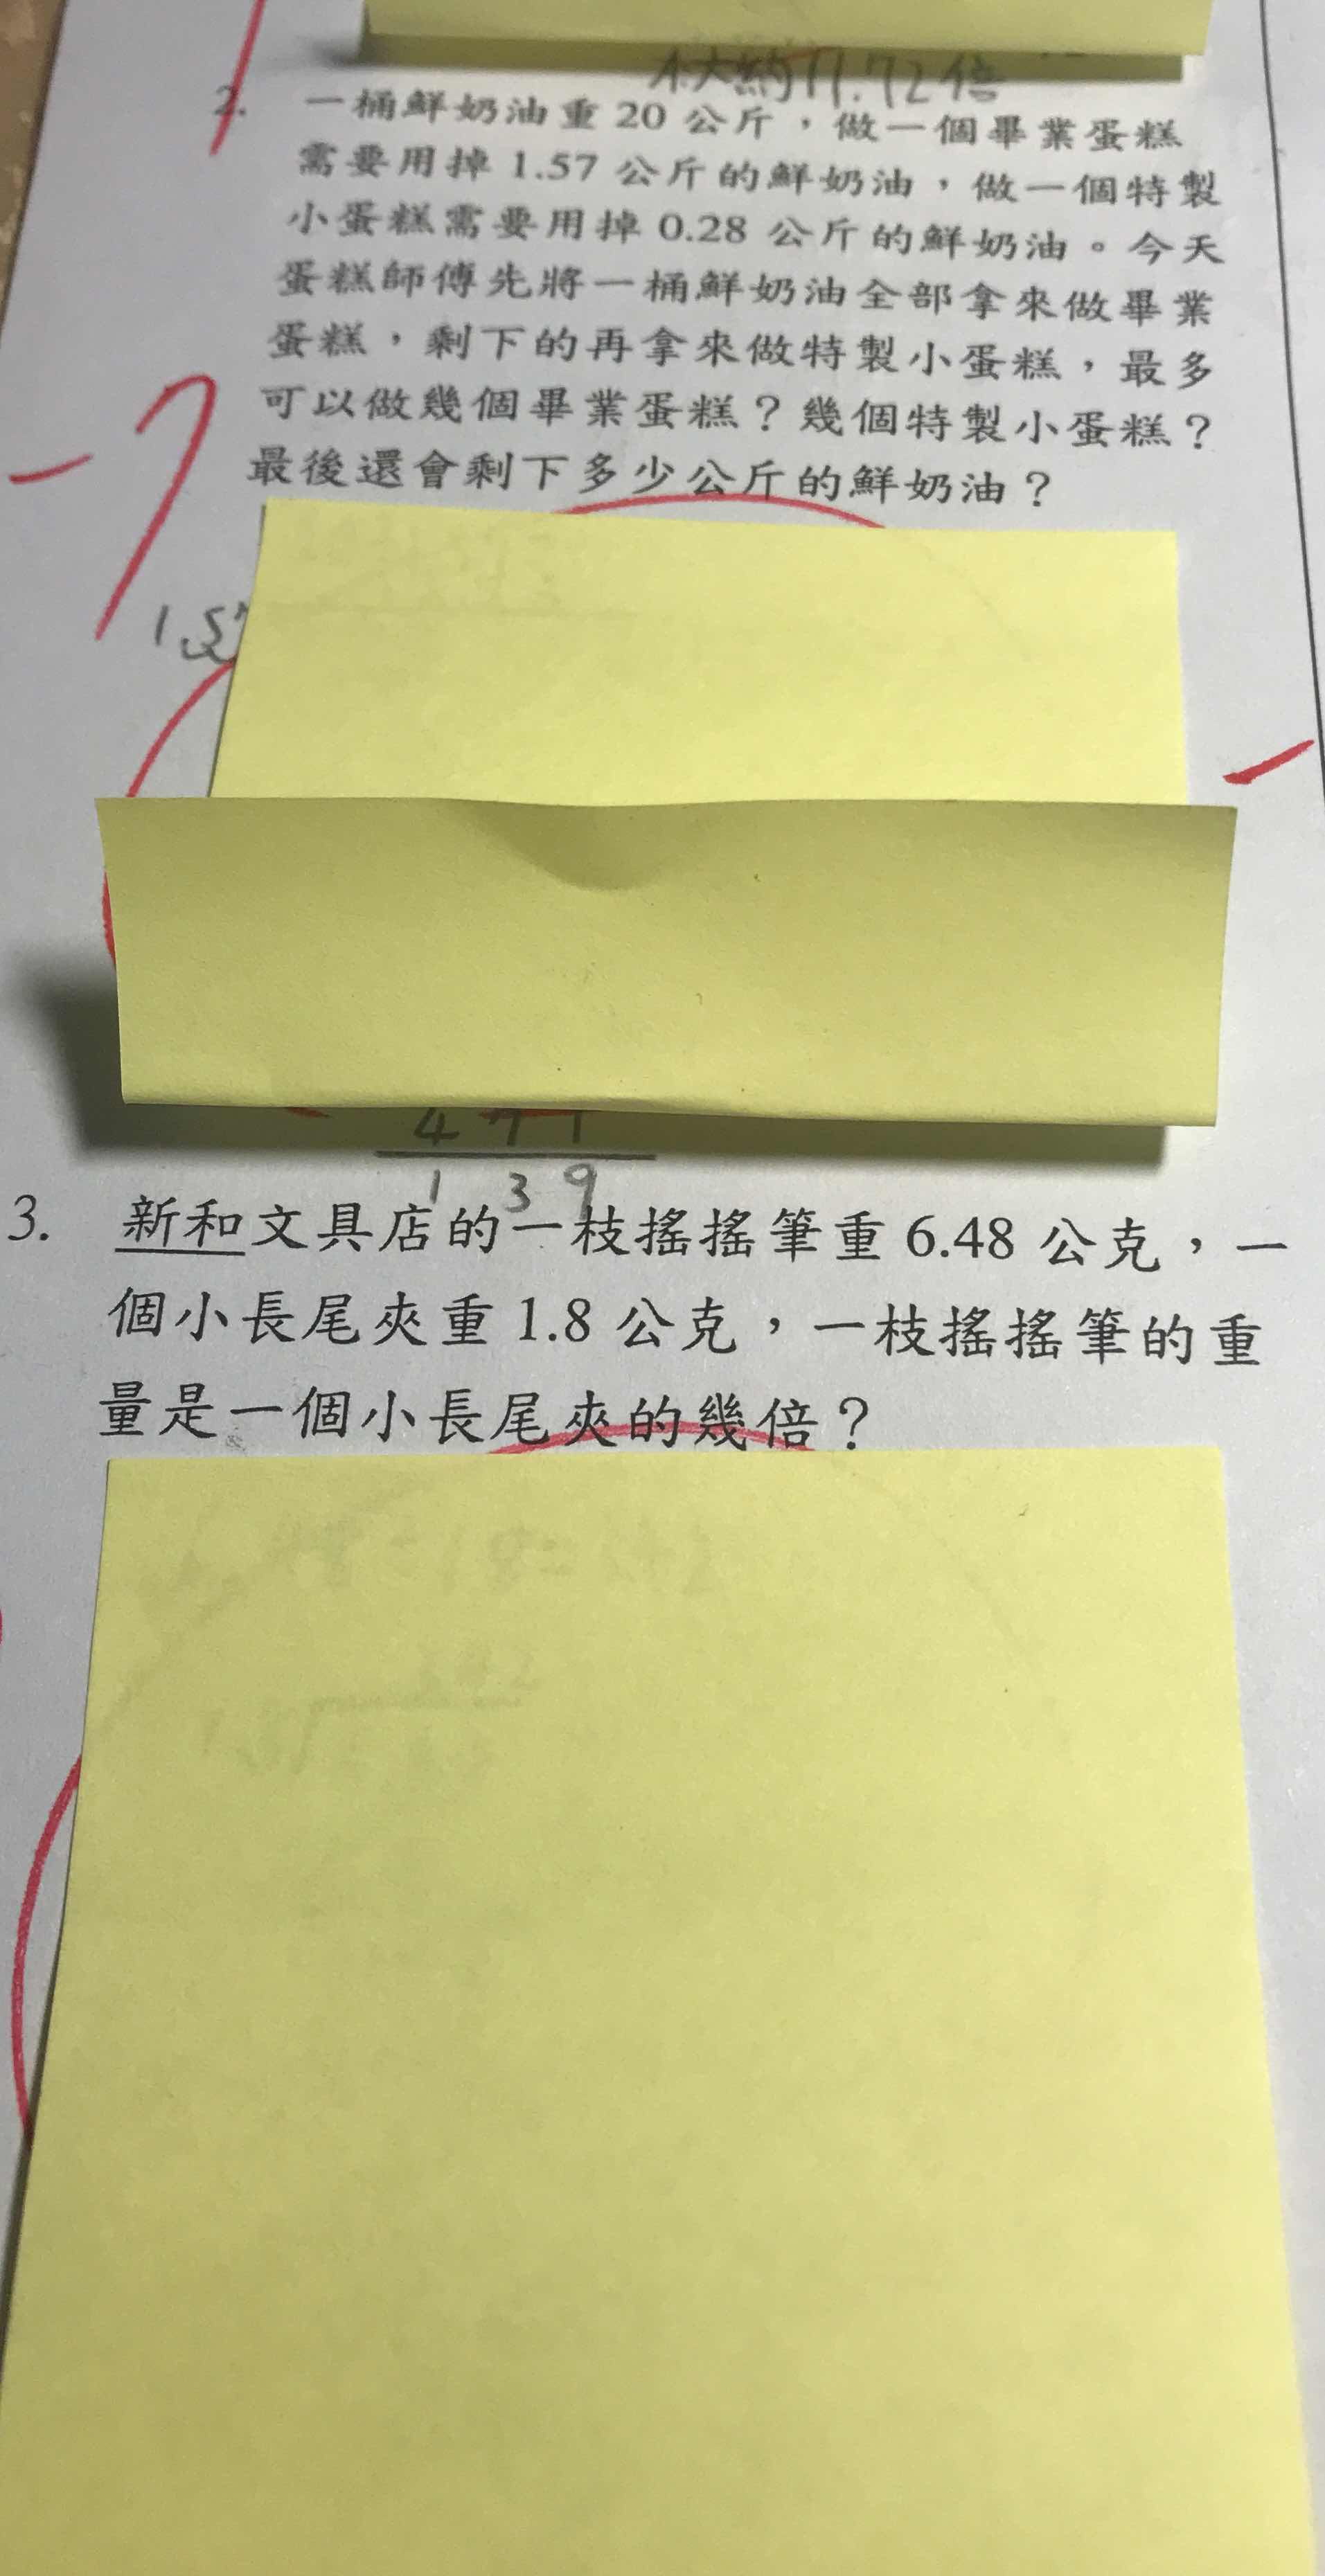 大約11.72倍
2. 一桶鮮奶油重20公斤，做一個畢業蛋糕
需要用掉1.57公斤的鮮奶油，做一個特製
小蛋糕需要用掉0.28公斤的鮮奶油。今天
蛋糕師傅先將一桶鮮奶油全部拿來做畢業
蛋糕，剩下的再拿來做特製小蛋糕，最多
可以做幾個畢業蛋糕？幾個特製小蛋糕？
最後還會剩下多少公斤的鮮奶油？
1.57
4 7 1
1 3 9
3. 新和文具店的一枝搖搖筆重6.48公克，一
個小長尾夾重1.8公克，一枝搖搖筆的重
量是一個小長尾夾的幾倍？